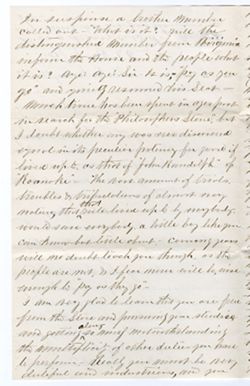 In suspense a brother Member
called out "What is it?" will the
distinguished Member from Virginia
inform the House and the people what
it is? Aye! Aye! Sir it is "Pay as you
go" and John resumed his Seat —
Much time has been spent in ages past
in search for the Philosophers Stone, but
I doubt whether any was ever discovered
equal in its peculiar potency for good if
lived up to, as that of John Randolph of
Roanoke" — The vast amount of trials
troubles & tribulations of almost any
nature, that rule lived up to by anybody
would save anybody, a little boy like you
can know but little about. Coming years
will no doubt teach you though, as the
people are not, & I fear never will be, wise
enough to pay as they go".
I am very glad to learn that you are free
from the Sore and pursuing your studies
and getting along so notwithstanding
the of other duties you have
to perform. Really you must be very
dutiful and industrious, and you